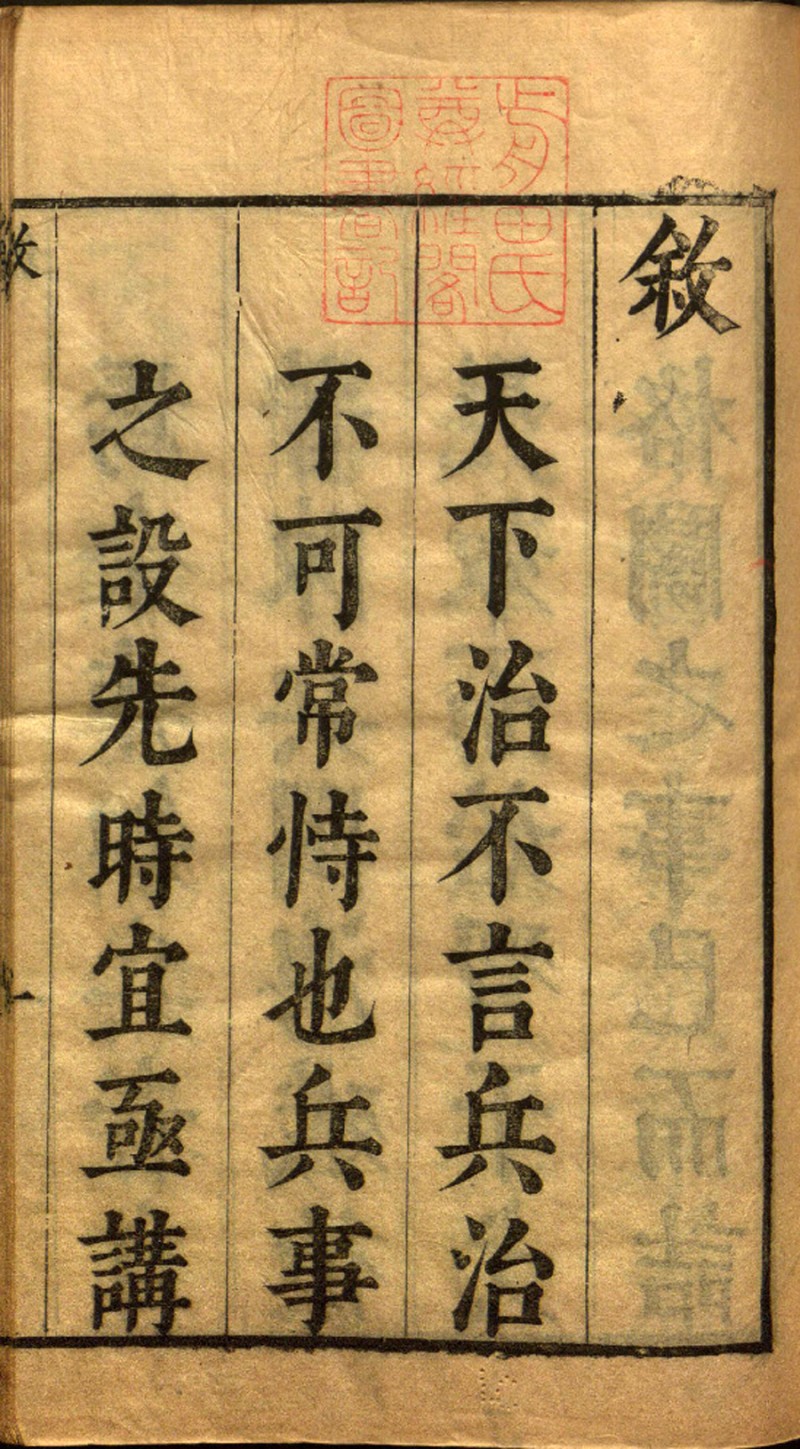 敘
天下治不言兵治
不可常恃也兵事
之設先時宜亟講
敘
一
氏
義經閣
圖書記